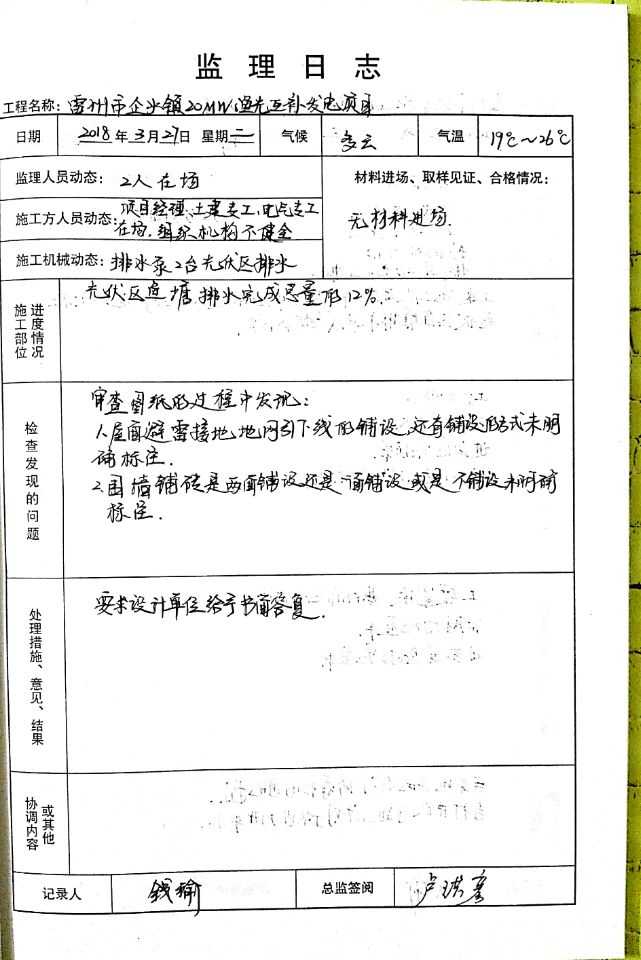 监理日志
工程名称：雷州市企水镇20MW渔光互补发电项目
日期 2018年3月27日 星期二 气候 多云 气温 19℃～26℃
监理人员动态：2人在场
材料进场、取样见证、合格情况：
无材料进场.
施工方人员动态：项目经理、土建专工，电气专工
在场.组织机构不健全
施工机械动态：排水泵2台光伏区排水
施工部位 进度情况
光伏区鱼塘排水完成总量的12%.
检查发现的问题
审查图纸的过程中发现：
1.屋面避雷接地、地网引下线的铺设，还有铺设的方式未明
确标注.
2.围墙铺砖是两面铺设还是一面铺设或是不铺设未明确
标注.
处理措施、意见、结果
要求设计单位给予书面答复.
协调内容 或其他
记录人 钱瑜 总监签阅 卢